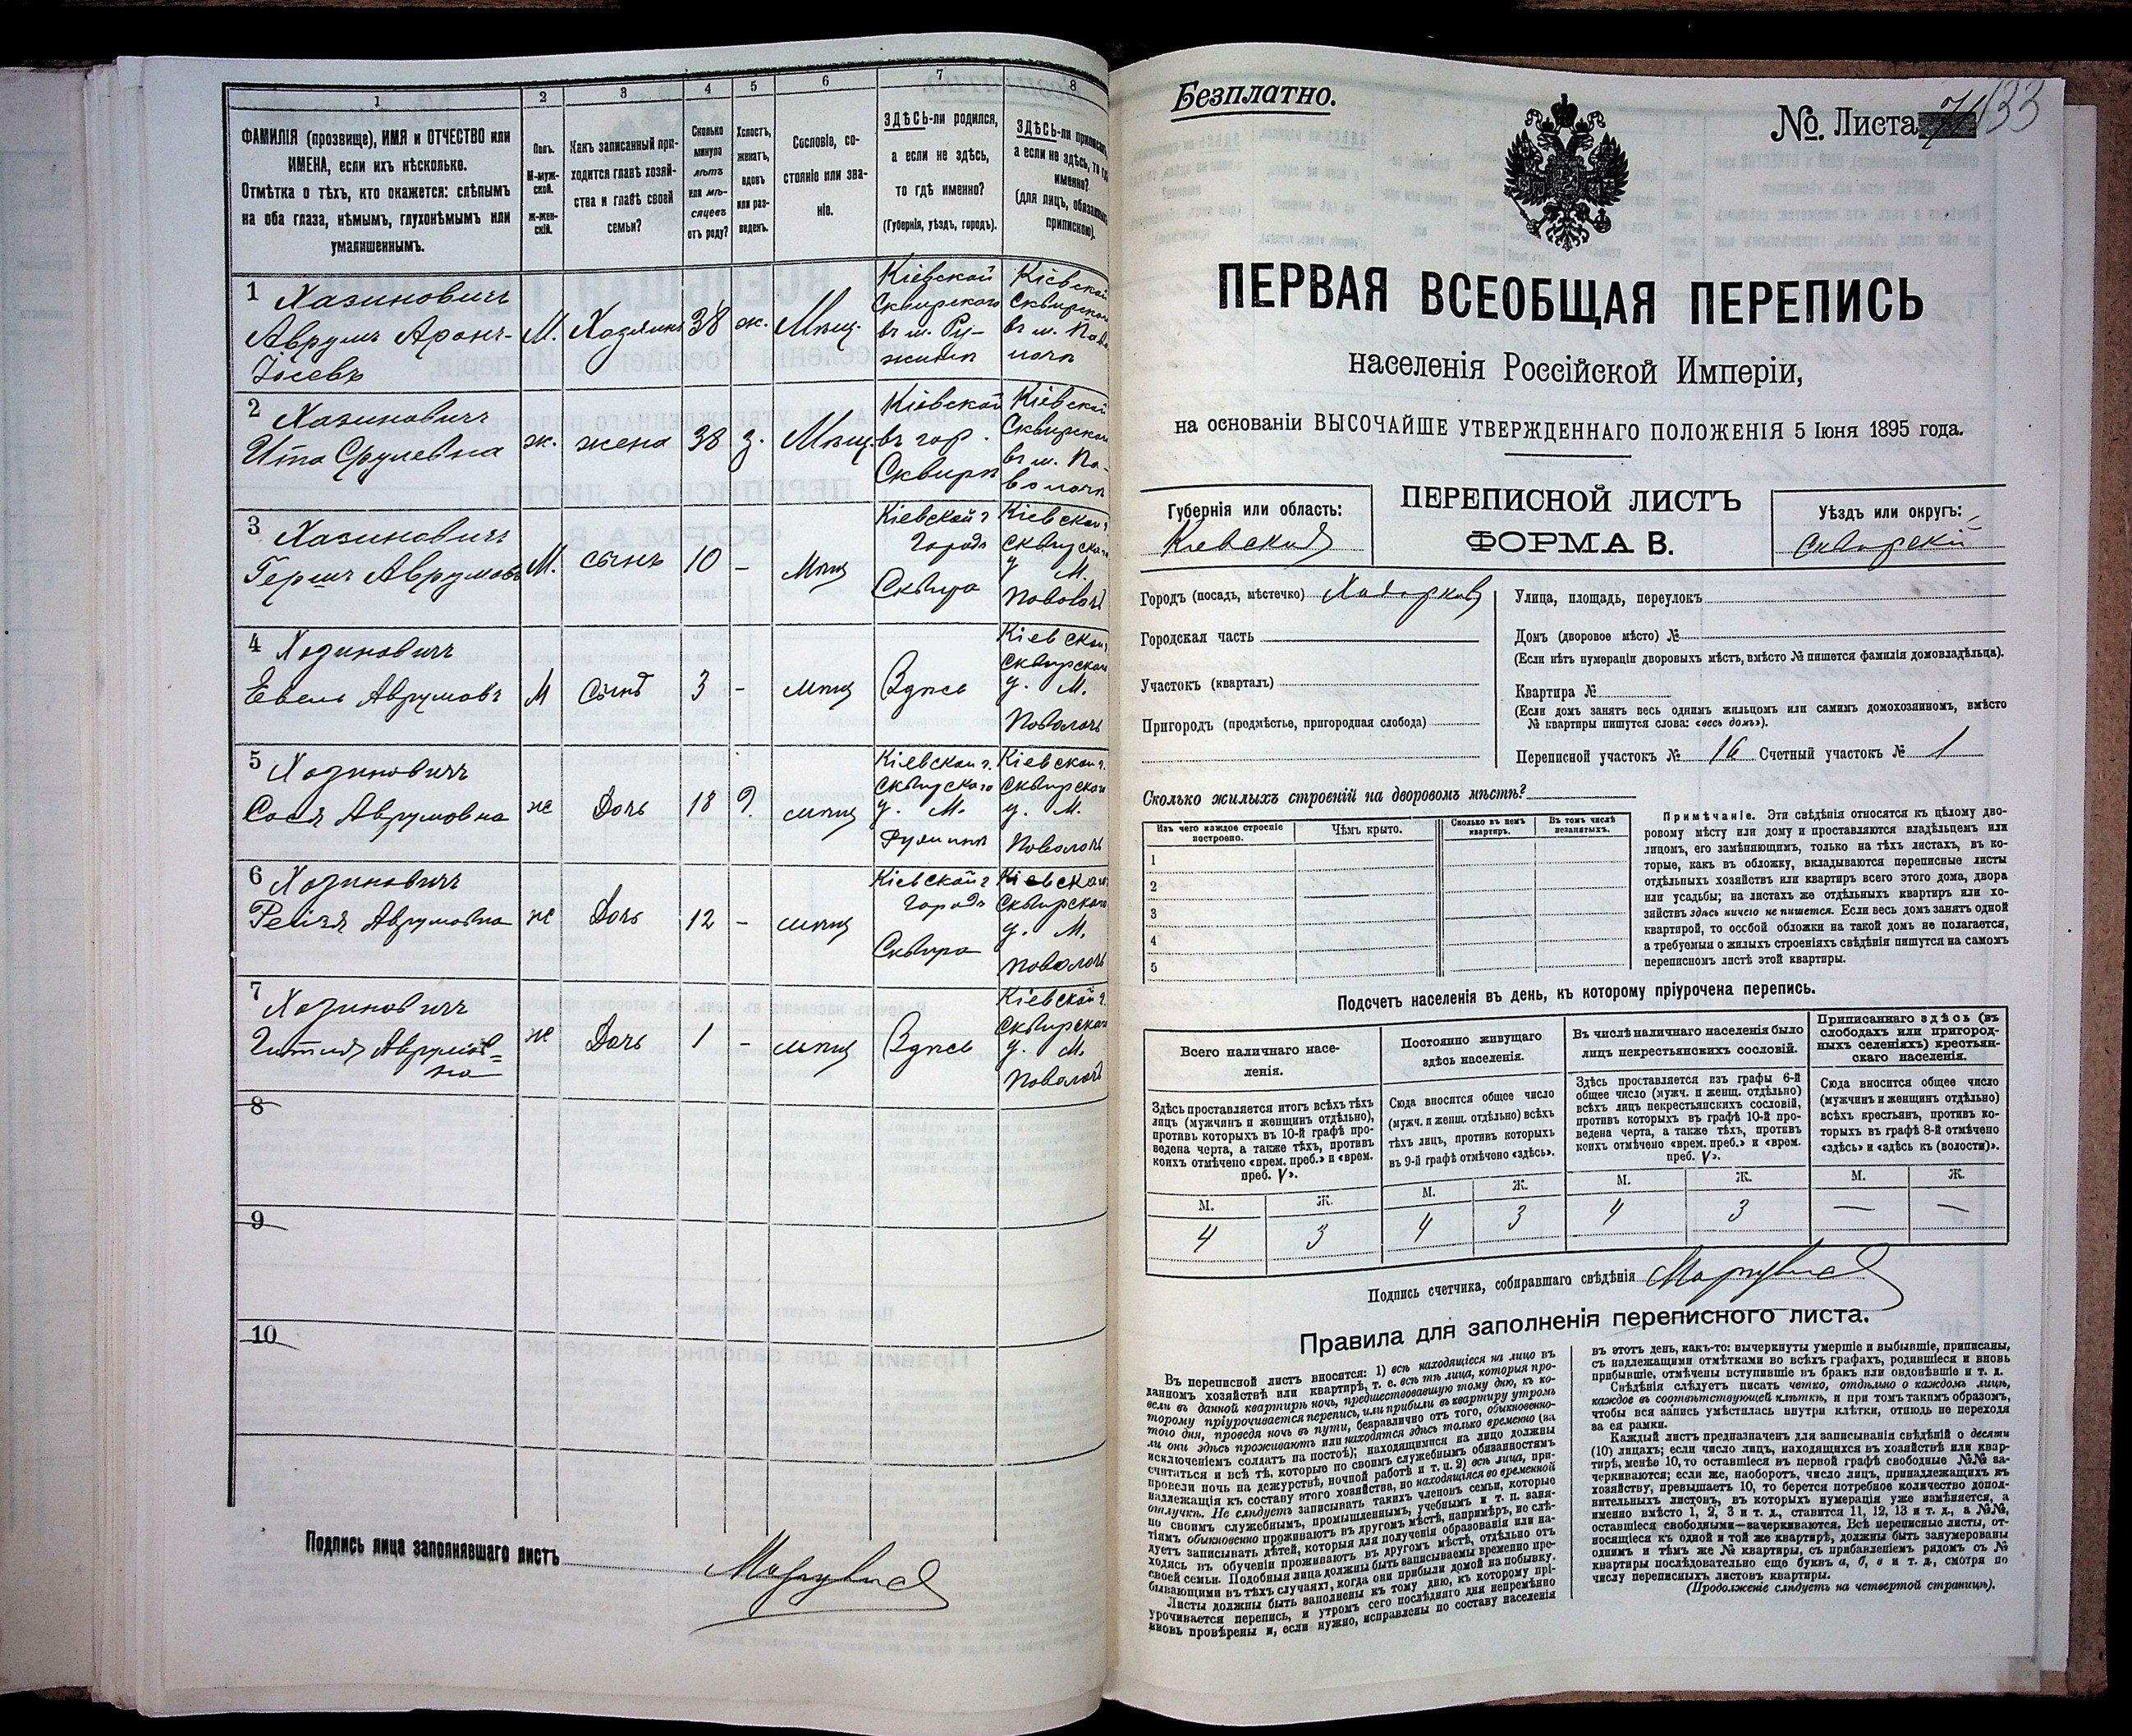 1
2
3
4
5
6
7
8
ФАМИЛІЯ (прозвище), ИМЯ и ОТЧЕСТВО или
ИМЕНА, если ихъ нѣсколько.
Отмѣтка о тѣхъ, кто окажется: слѣпымъ
на оба глаза, нѣмымъ, глухонѣмымъ или
умалишеннымъ.
Полъ.
М-муж-
ской.
ж-жен-
скій.
Какъ записанный при-
ходится главѣ хозяй-
ства и главѣ своей
семьи?
Сколько
минуло
лѣтъ
или мѣ-
сяцевъ
отъ роду?
Холостъ,
женатъ,
вдовъ
или раз-
веденъ.
Сословіе, со-
стояніе или зва-
ніе.
ЗДѢСЬ-ли родился,
а если не здѣсь,
то гдѣ именно?
(Губернія, уѣздъ, городъ).
ЗДѢСЬ-ли приписанъ,
а если не здѣсь, то гдѣ
именно?
(для лицъ, обязанныхъ
припискою).
1 Хазиновичъ
Аврумъ Аронъ-
Іосевъ
М. Хозяинъ 38 ж. Мѣщ.
Кіевской
Сквирского
въ м. Ру-
жинѣ
Кіевской
Сквирском
въ м. Паво
лочи
2 Хазиновичъ
Ита Срулевна
ж. жена 38 з. Мѣщ.
Кіевской
въ гор.
Сквирѣ
Кіевской
Сквирском
въ м. Па-
волочи
3 Хазиновичъ
Гершъ Аврумовъ
М. сынъ 10 - Мѣщ
Кіевской г
Городъ
Сквира
Кіевской г
Сквирском
у М.
Поволочъ
4 Хозиновичъ
Евель Аврумовъ
М Сынъ 3 - мѣщ Здѣсь
Кіевской
Сквирском
у. М.
Поволочь
5 Хозиновичъ
Сося Аврумовна
же Дочь 18 д. мѣщ
Кіевской г.
Сквирского
у. М.
Кіевской г.
Сквирском
у. М.
Поволочь
6 Хозиновичъ
Рейзя Аврумовна
же Дочь 12 - мѣщ
Кіевской г
Городъ
Сквира
Кіевской
Сквирском
у. М.
Поволочь
7 Хозиновичъ
Гитля Аврумов=
на
же Дочь 1 - мѣщ Здѣсь
Кіевской г.
Сквирском
у. М.
Поволочъ
8
9
10
Подпись лица заполнявшаго листъ
Безплатно.
№. Листа 133
ПЕРВАЯ ВСЕОБЩАЯ ПЕРЕПИСЬ
населенія Россійской Имперіи,
на основаніи ВЫСОЧАЙШЕ УТВЕРЖДЕННАГО ПОЛОЖЕНІЯ 5 Іюня 1895 года.
Губернія или область:
Кіевская
ПЕРЕПИСНОЙ ЛИСТЪ
ФОРМА В.
Уѣздъ или округъ:
Сквирскій
Городъ (посадъ, мѣстечко) Ходорковъ
Городская часть
Участокъ (кварталъ)
Пригородъ (предмѣстье, пригородная слобода)
Улица, площадь, переулокъ
Домъ (дворовое мѣсто) №
(Если нѣтъ нумераціи дворовыхъ мѣстъ, вмѣсто № пишется фамилія домовладѣльца).
Квартира №
(Если домъ занятъ весь однимъ жильцомъ или самимъ домохозяиномъ, вмѣсто
№ квартиры пишутся слова: «весь домъ»).
Переписной участокъ № 16 Счетный участокъ № 1
Сколько жилыхъ строеній на дворовомъ мѣстѣ?
Изъ чего каждое строеніе
построено.
Чѣмъ крыто.
Сколько въ немъ
квартиръ.
Въ томъ числѣ
незанятыхъ.
1
2
3
4
5
Примѣчаніе. Эти свѣдѣнія относятся къ цѣлому дво-
ровому мѣсту или дому и проставляются владѣльцемъ или
лицомъ, его замѣняющимъ, только на тѣхъ листахъ, въ ко-
торые, какъ въ обложку, вкладываются переписные листы
отдѣльныхъ хозяйствъ или квартиръ всего этого дома, двора
или усадьбы; на листахъ же отдѣльныхъ квартиръ или хо-
зяйствъ здѣсь ничего не пишется. Если весь домъ занятъ одной
квартирой, то особой обложки на такой домъ не полагается,
а требуемыя о жилыхъ строеніяхъ свѣдѣнія пишутся на самомъ
переписномъ листѣ этой квартиры.
Подсчетъ населенія въ день, къ которому пріурочена перепись.
Всего наличнаго насе-
ленія.
Здѣсь проставляется итогъ всѣхъ тѣхъ
лицъ (мужчинъ и женщинъ отдѣльно),
противъ которыхъ въ 10-й графѣ про-
ведена черта, а также тѣхъ, противъ
коихъ отмѣчено «врем. преб.» и «врем.
преб. V».
Постоянно живущаго
здѣсь населенія.
Сюда вносится общее число
(мужч. и женщ. отдѣльно) всѣхъ
тѣхъ лицъ, противъ которыхъ
въ 9-й графѣ отмѣчено «здѣсь».
Въ числѣ наличнаго населенія было
лицъ некрестьянскихъ сословій.
Здѣсь проставляется изъ графы 6-й
общее число (мужч. и женщ. отдѣльно)
всѣхъ лицъ некрестьянскихъ сословій,
противъ которыхъ въ графѣ 10-й про-
ведена черта, а также тѣхъ, противъ
коихъ отмѣчено «врем. преб.» и «врем.
преб. V».
Приписаннаго здѣсь (въ
слободахъ или пригород-
ныхъ селеніяхъ) крестьян-
скаго населенія.
Сюда вносится общее число
(мужчинъ и женщинъ отдѣльно)
всѣхъ крестьянъ, противъ ко-
торыхъ въ графѣ 8-й отмѣчено
«здѣсь» и «здѣсь къ (волости)».
М. Ж. М. Ж. М. Ж. М. Ж.
4 3 4 3 4 3 — —
Подпись счетчика, собиравшаго свѣдѣнія
Правила для заполненія переписного листа.
Въ переписной листъ вносятся: 1) всѣ находящіеся на лицо въ
данномъ хозяйствѣ или квартирѣ, т. е. всѣ тѣ лица, которыя про-
вели въ данной квартирѣ ночь, предшествовавшую тому дню, къ ко-
торому пріурочивается перепись, или прибыли въ квартиру утромъ
того дня, проведя ночь въ пути, безразлично отъ того, обыкновенно-
ли они здѣсь проживаютъ или находятся здѣсь только временно (за
исключеніемъ солдатъ на постоѣ); находящимися на лицо должны
считаться и всѣ тѣ, которые по своимъ служебнымъ обязанностямъ
провели ночь на дежурствѣ, ночной работѣ и т. п. 2) всѣ лица, при-
надлежащія къ составу этого хозяйства, но находящіяся во временной
отлучкѣ. Не слѣдуетъ записывать такихъ членовъ семьи, которые
по своимъ служебнымъ, промышленнымъ, учебнымъ и т. п. заня-
тіямъ обыкновенно проживаютъ въ другомъ мѣстѣ, напримѣръ, не слѣ-
дуетъ записывать дѣтей, которыя для полученія образованія или на-
ходясь въ обученіи проживаютъ въ другомъ мѣстѣ, отдѣльно отъ
своей семьи. Подобныя лица должны быть записываемы временно пре-
бывающими въ тѣхъ случаяхъ, когда они прибыли домой на побывку.
Листы должны быть заполнены къ тому дню, къ которому прі-
урочивается перепись, и утромъ сего послѣдняго дня непремѣнно
вновь провѣрены и, если нужно, исправлены по составу населенія
въ этотъ день, какъ-то: вычеркнуты умершіе и выбывшіе, приписаны,
съ надлежащими отмѣтками во всѣхъ графахъ, родившіеся и вновь
прибывшіе, отмѣчены вступившіе въ бракъ или овдовѣвшіе и т. д.
Свѣдѣнія слѣдуетъ писать четко, отдѣльно о каждомъ лицѣ,
каждое въ соотвѣтствующей клѣткѣ, и при томъ такимъ образомъ,
чтобы вся запись умѣстилась внутри клѣтки, отнюдь не переходя
за ея рамки.
Каждый листъ предназначенъ для записыванія свѣдѣній о десяти
(10) лицахъ; если число лицъ, находящихся въ хозяйствѣ или квар-
тирѣ, менѣе 10, то оставшіеся въ первой графѣ свободные №№ за-
черкиваются; если же, наоборотъ, число лицъ, принадлежащихъ къ
хозяйству, превышаетъ 10, то берется потребное количество допол-
нительныхъ листовъ, въ которыхъ нумерація уже измѣняется, а
именно вмѣсто 1, 2, 3 и т. д., ставится 11, 12, 13 и т. д., а №№,
оставшіеся свободными—зачеркиваются. Всѣ переписные листы, от-
носящіеся къ одной и той же квартирѣ, должны быть занумерованы
однимъ и тѣмъ же № квартиры, съ прибавленіемъ рядомъ съ №
квартиры послѣдовательно еще буквъ а, б, в и т. д., смотря по
числу переписныхъ листовъ квартиры.
(Продолженіе слѣдуетъ на четвертой страницѣ).